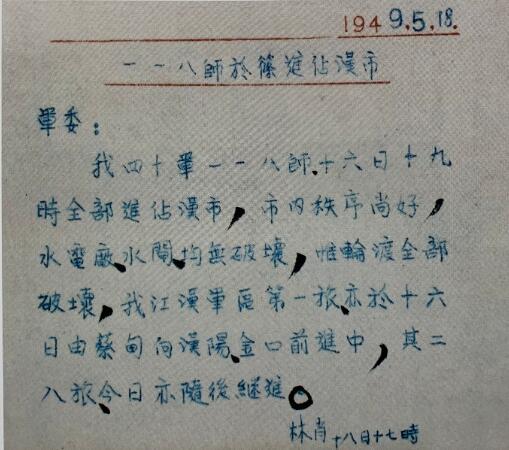 1949.5.18.
一一八師於篠進佔漢市
軍委：
我四十軍一一八師、十六日十九
時全部進佔漢市，市内秩序尚好，
水電廠、水閘、均無破壞，惟輪渡全部
破壞，我江漢軍區第一旅、亦於十六
日由蔡甸向漢陽、金口前進中，其二
八旅、今日亦隨後繼進。
林肖十八日十七時